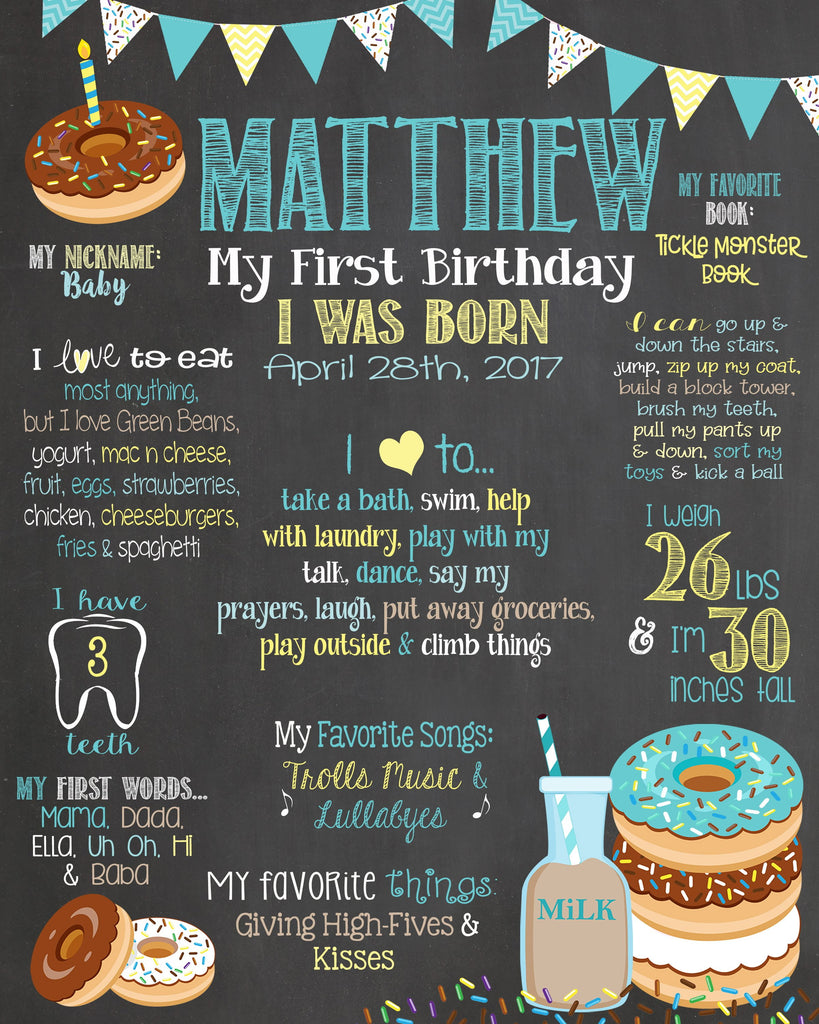 MATTHEW
My First Birthday
I WAS BORN
April 28th, 2017
MY NICKNAME:
Baby
MY FAVORITE
BOOK:
Tickle Monster
Book
I love to eat
most anything,
but I love Green Beans,
yogurt, mac n cheese,
fruit, eggs, strawberries,
chicken, cheeseburgers,
fries & spaghetti
I can go up &
down the stairs,
jump, zip up my coat,
build a block tower,
brush my teeth,
pull my pants up
& down, sort my
toys & kick a ball
I to...
take a bath, swim, help
with laundry, play with my
talk, dance, say my
prayers, laugh, put away groceries,
play outside & climb things
I weigh
26 Lbs
& I'm 30
inches tall
I have
3
teeth
My Favorite Songs:
Trolls Music &
Lullabyes
MY FIRST WORDS...
Mama, Dada,
Ella, Uh Oh, Hi
& Baba
My favorite things:
Giving High-Fives &
Kisses
MiLK